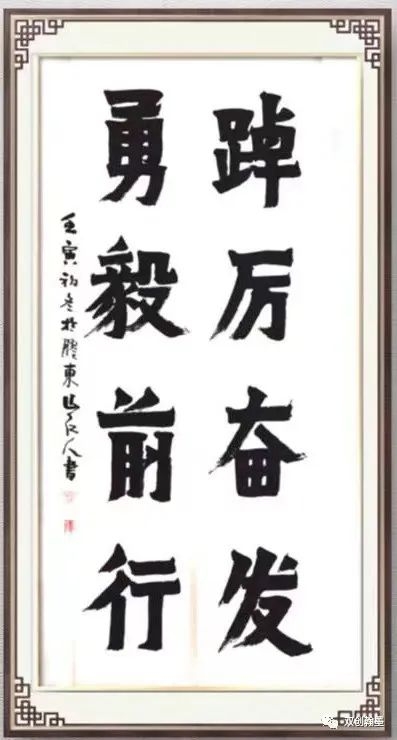 踔厉奋发
勇毅前行
壬寅初冬於膠東人書
双创翰墨